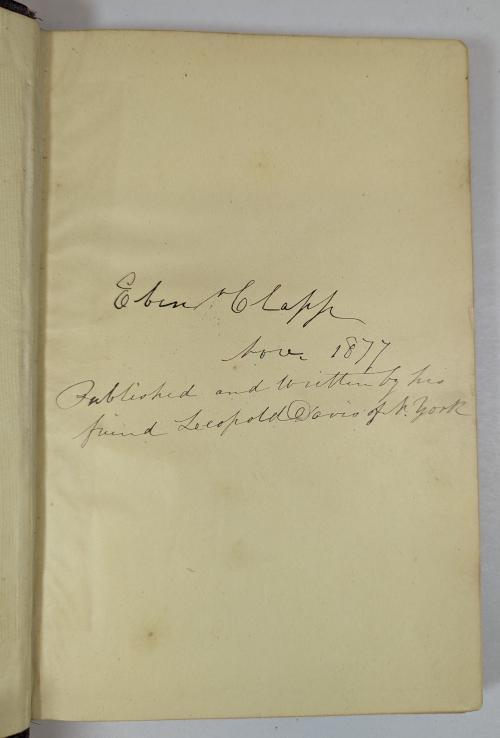 Ebenr Clapp
Nov. 1877
Published and written by his
friend Leopold Davis of N. York